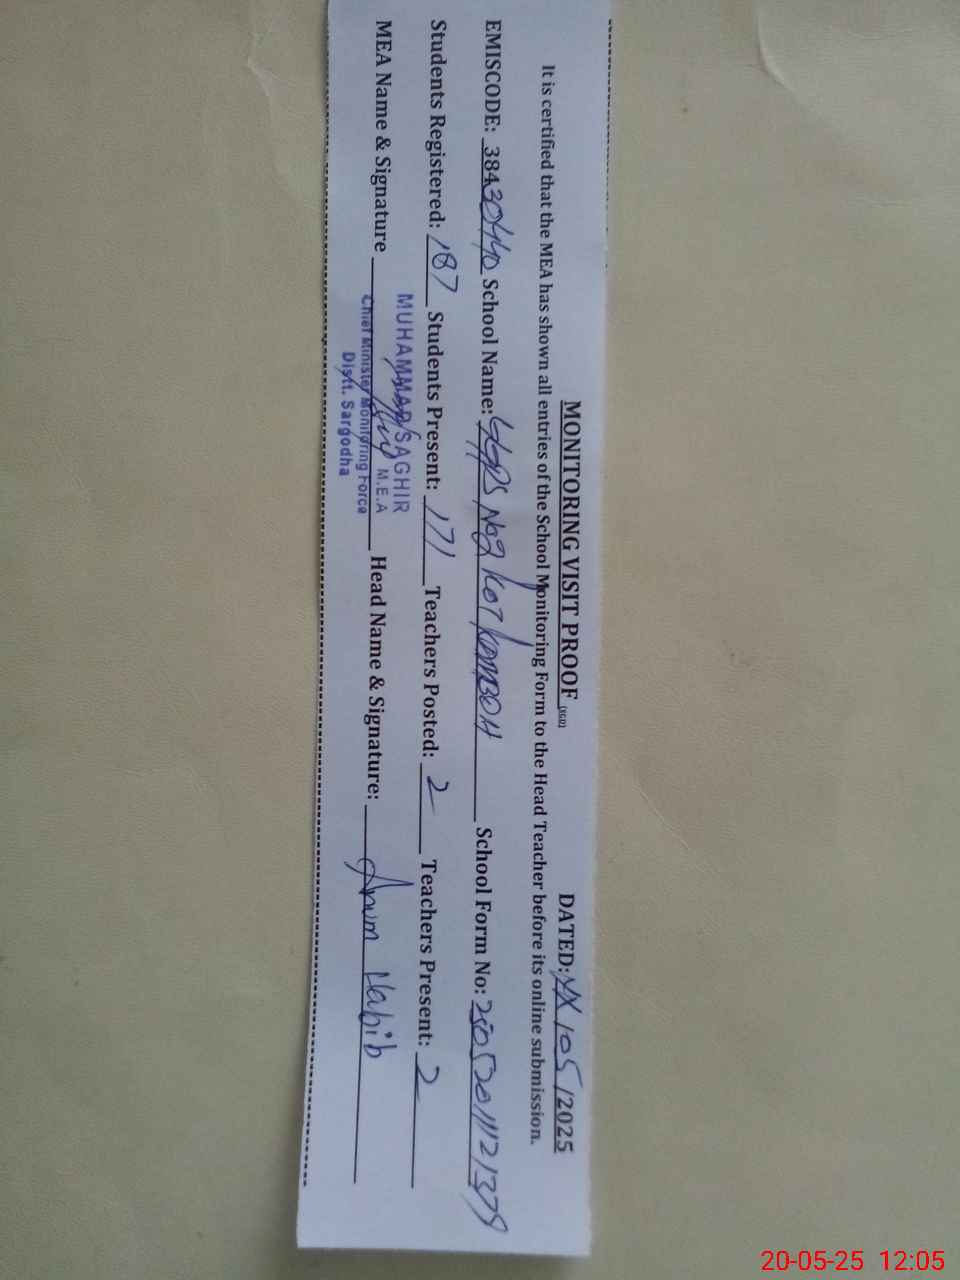 MONITORING VISIT PROOF (SGD) DATED: /05/2025
It is certified that the MEA has shown all entries of the School Monitoring Form to the Head Teacher before its online submission.
EMISCODE: 38430440 School Name: GGPS No2 KOT KAMBOH School Form No:
Students Registered: 187 Students Present: 171 Teachers Posted: 2 Teachers Present: 2
MEA Name & Signature Head Name & Signature: Anum Habib
MUHAMMAD SAGHIR
M.E.A
Chief Minister Monitoring Force
Distt. Sargodha
20-05-25 12:05